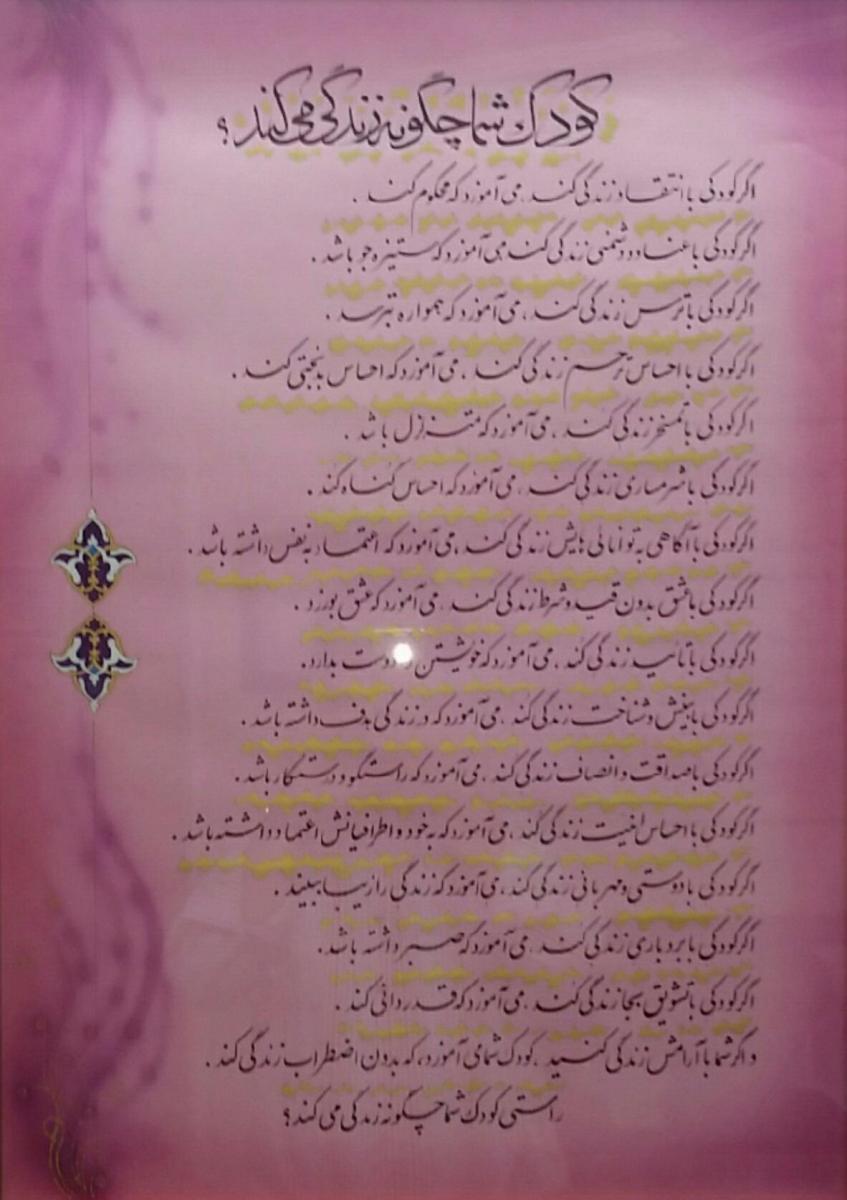 کودک شما چگونه زندگی می کند؟
اگر کودکی با انتقاد زندگی کند، می آموزد که محکوم کند .
اگر کودکی با عناد و دشمنی زندگی کند می آموزد که ستیزه جو باشد .
اگر کودکی با ترس زندگی کند، می آموزد که همواره بترسد .
اگر کودکی با احساس ترحم زندگی کند ، می آموزد که احساس بدبختی کند .
اگر کودکی با تمسخر زندگی کند ، می آموزد که متزلزل باشد .
اگر کودکی با شرمساری زندگی کند ، می آموزد که احساس گناه کند .
اگر کودکی با آگاهی به توانایی هایش زندگی کند ،می آموزد که اعتماد به نفس داشته باشد .
اگر کودکی با عشق بدون قید و شرط زندگی کند، می آموزد که عشق بورزد .
اگر کودکی با تائید زندگی کند ، می آموزد که خویشتن دوست بدارد.
اگر کودکی با بینش و شناخت زندگی کند ، می آموزد که در زندگی هدف داشته باشد .
اگر کودکی با صداقت و انصاف زندگی کند ، می آموزد که راستگو و درستکار باشد .
اگر کودکی با احساس امنیت زندگی کند ، می آموزد که به خود و اطرافیانش اعتماد داشته باشد .
اگر کودکی با دوستی و مهربانی زندگی کند ، می آموزد که زندگی را زیبا ببیند .
اگر کودکی با بردباری زندگی کند، می آموزد که صبر داشته باشد.
اگر کودکی با تشویق بجا زندگی کند، می آموزد که قدردانی کند .
و اگر شما با آرامش زندگی کنید ، کودک شما می آموزد، که بدون اضطراب زندگی کند .
راستی کودک شما چگونه زندگی می کند؟